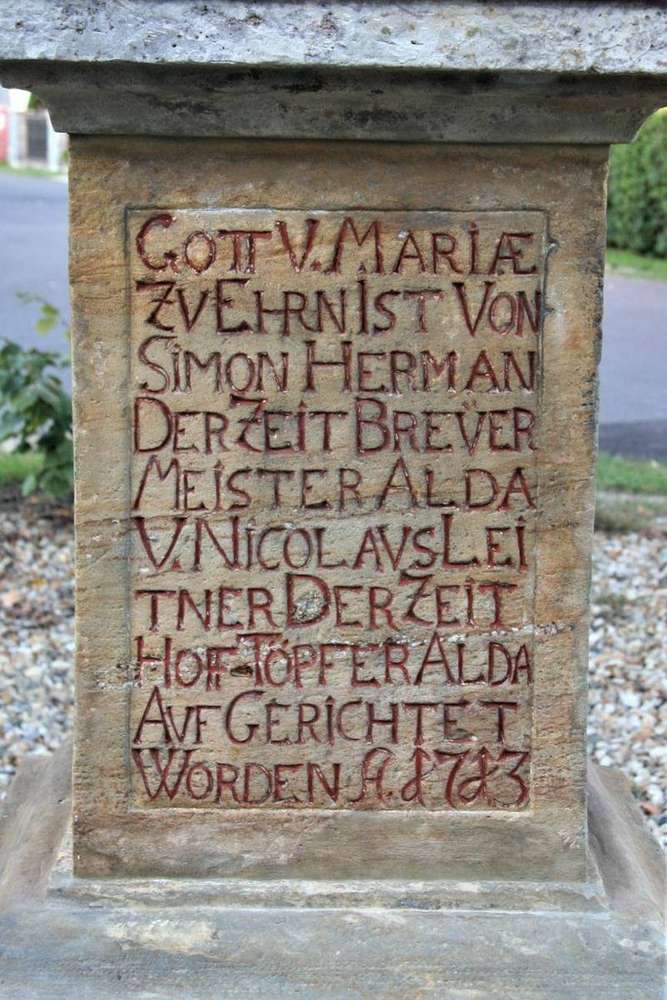 GOTT V. MARIÆ
ZV EHRN IST VON
SIMON HERMAN
DERZEIT BREVER
MEISTER ALDA
V. NICOLAVS LEI
TNER DERZEIT
HOFF TÖPFER ALDA
AVF GERICHTET
WORDEN A. 1713